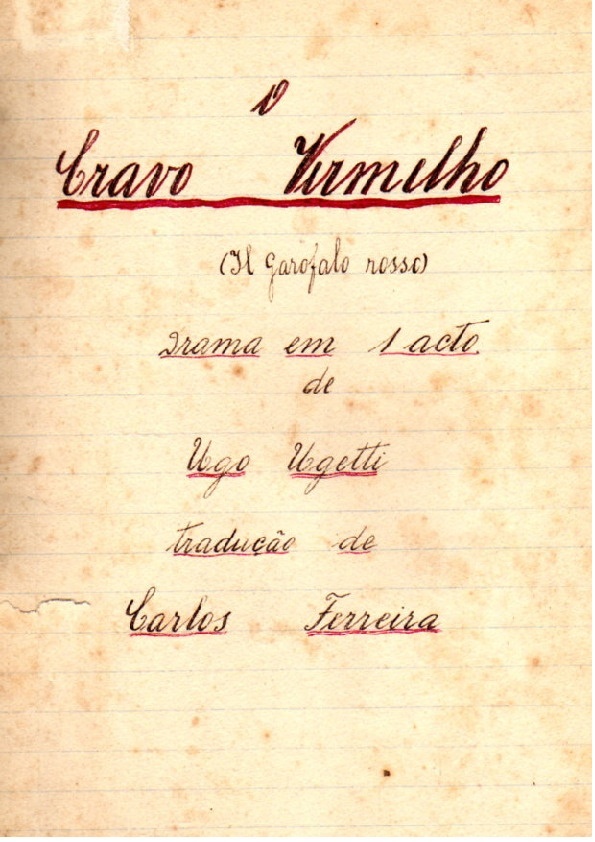 O
Cravo Vermelho
(Il Garofalo rosso)
Drama em 1 acto
de
Ugo Ugetti
tradução de
Carlos Ferreira